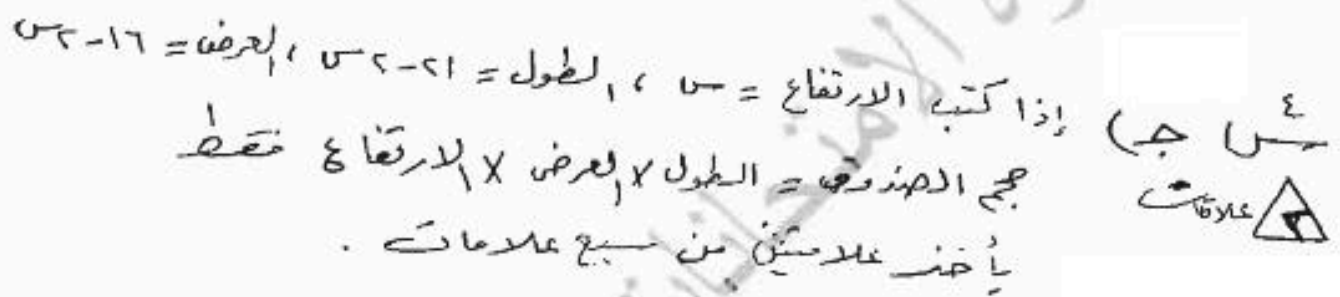 س٤ ج) إذا كتب الارتفاع = س ، الطول = ٢١-٢س ، العرض = ١٦-٢س
حجم الصندوق = الطول × العرض × الارتفاع فقط
يأخذ علامتين من سبع علامات .
علامات